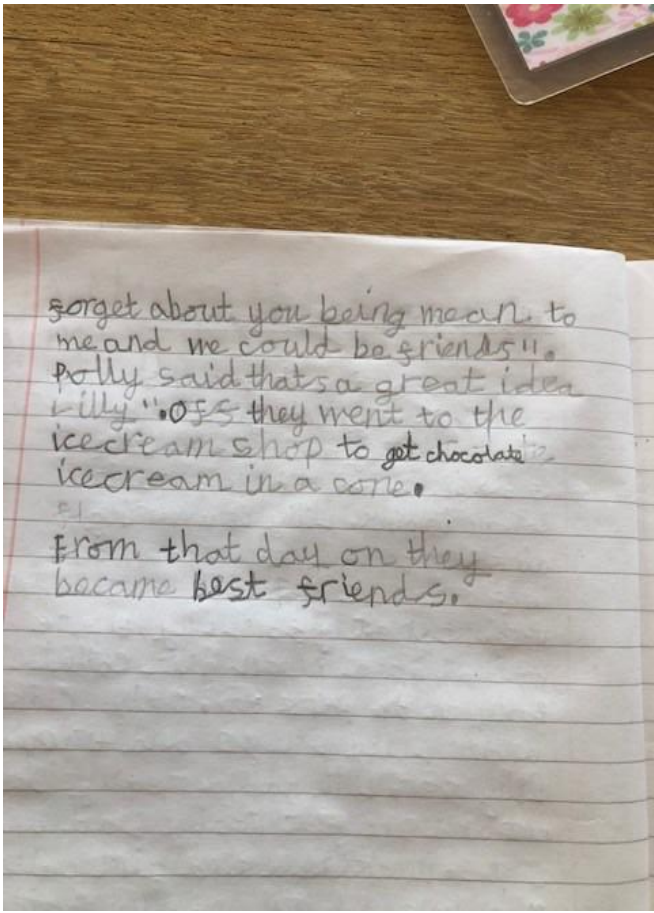 forget about you being mean. to
me and we could be friends".
Polly said thats a great idea
Lilly". Off they went to the
icecream shop to get chocolate
icecream in a cone.
From that day on they
became best friends.